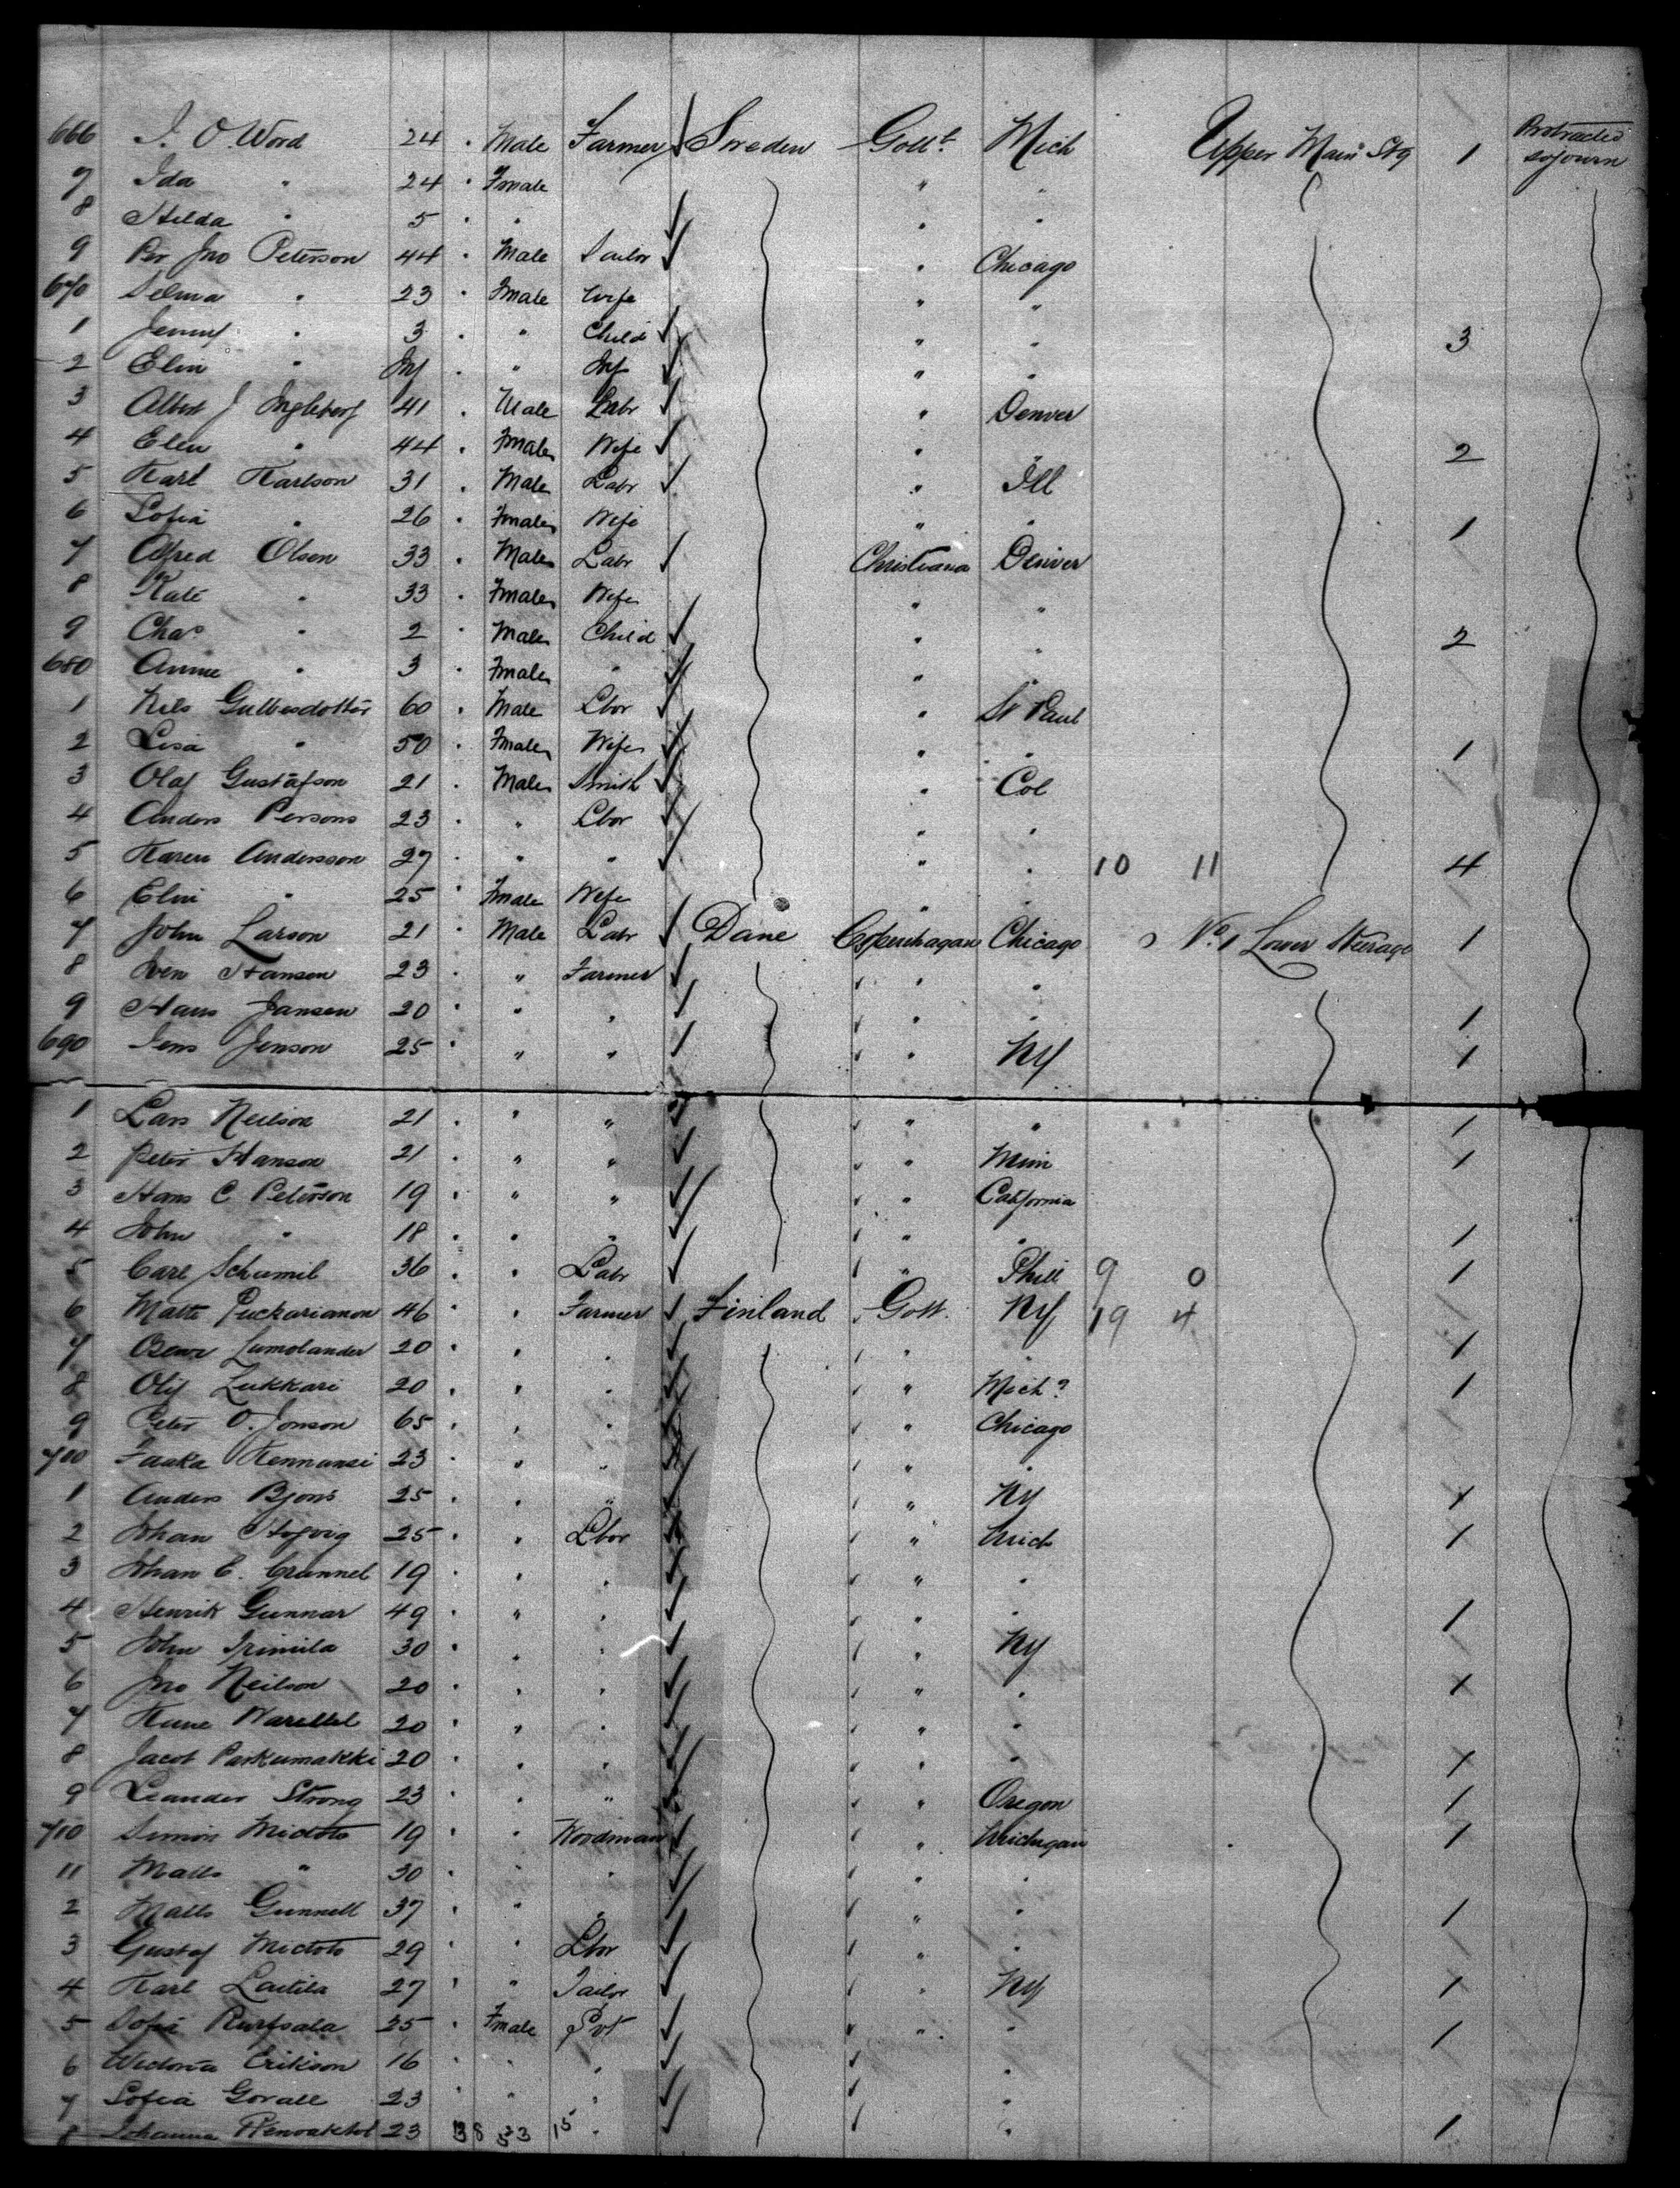 666 J. O. Word 24 . Male Farmer Sweden Gottb Mich Upper Main Stg 1 Protracted sojourn
7 Ida " 24 . Fmale " "
8 Hilda " 5 . " " "
9 Per Jno Peterson 44 . Male Sailor " Chicago
670 Selma " 23 . Fmale Wife " "
1 Jenny " 3 . " Child " " 3
2 Elin " Inf . " Inf " "
3 Albert J Ingleberg 41 . Male Labr " Denver
4 Elen " 44 . Fmale Wife " " 2
5 Karl Karlson 31 . Male Labr " Ill
6 Sofia " 26 . Fmale Wife " " 1
7 Alfred Olsen 33 . Male Labr Christiana Denver
8 Kate " 33 . Fmale Wife " "
9 Chas " 2 . Male Child " " 2
680 Annie " 3 . Fmale " " "
1 Nels 60 . Male Lbor " St Paul
2 Lisa " 50 . Fmale Wife " " 1
3 Olaf Gustafson 21 . Male Smith " Col
4 Anders Persons 23 . " Lbor " "
5 Karen Andersson 27 . " " " " 10 11 4
6 Elin " 25 . Fmale Wife " "
7 John Larson 21 . Male Labr Dane Copenhagan Chicago No. 1 Lower Steerage 1
8 Sven Hansen 23 . " Farmer " "
9 Hans Jansen 20 . " " " " 1
690 Jens Jenson 25 . " " " NY 1
1 Lars Neilson 21 . " " " " 1
2 Peter Hanson 21 . " " " Minn 1
3 Hans C Peterson 19 . " " " California
4 John " 18 . " " " " 1
5 Carl Schumil 36 . " Labr " Phil 9 0 1
6 Matts 46 . " Farmer Finland Gott. NY 19 4
7 20 . " " " " 1
8 Lukkari 20 . " " " Mich? 1
9 Peter O. Jonson 65 . " " " Chicago
700 23 . " " " "
1 Anders Bjons 25 . " " " NY 1
2 Johan 25 . " Lbor " Mich 1
3 Johan E. Grannel 19 . " " " "
4 Henrik Gunnar 49 . " " " " 1
5 John 30 . " " " NY
6 Jno Neilson 20 . " " " " 1
7 20 . " " " "
8 Jacob 20 . " " " " 1
9 Leander Strong 23 . " " " Oregon 1
710 Simon Mictots 19 . " Woodman " Michigan 1
11 Matts " 30 . " " " "
2 Matts Gunnell 37 . " " " " 1
3 Gustaf Mictots 29 . " Lbor " "
4 Karl Laitila 27 . " Tailor " NY 1
5 Sofia 25 . Fmale Svt " " 1
6 Erikson 16 . " " "
7 Sofia 23 . " " "
8 Johanna 23 38 53 15 " " 1